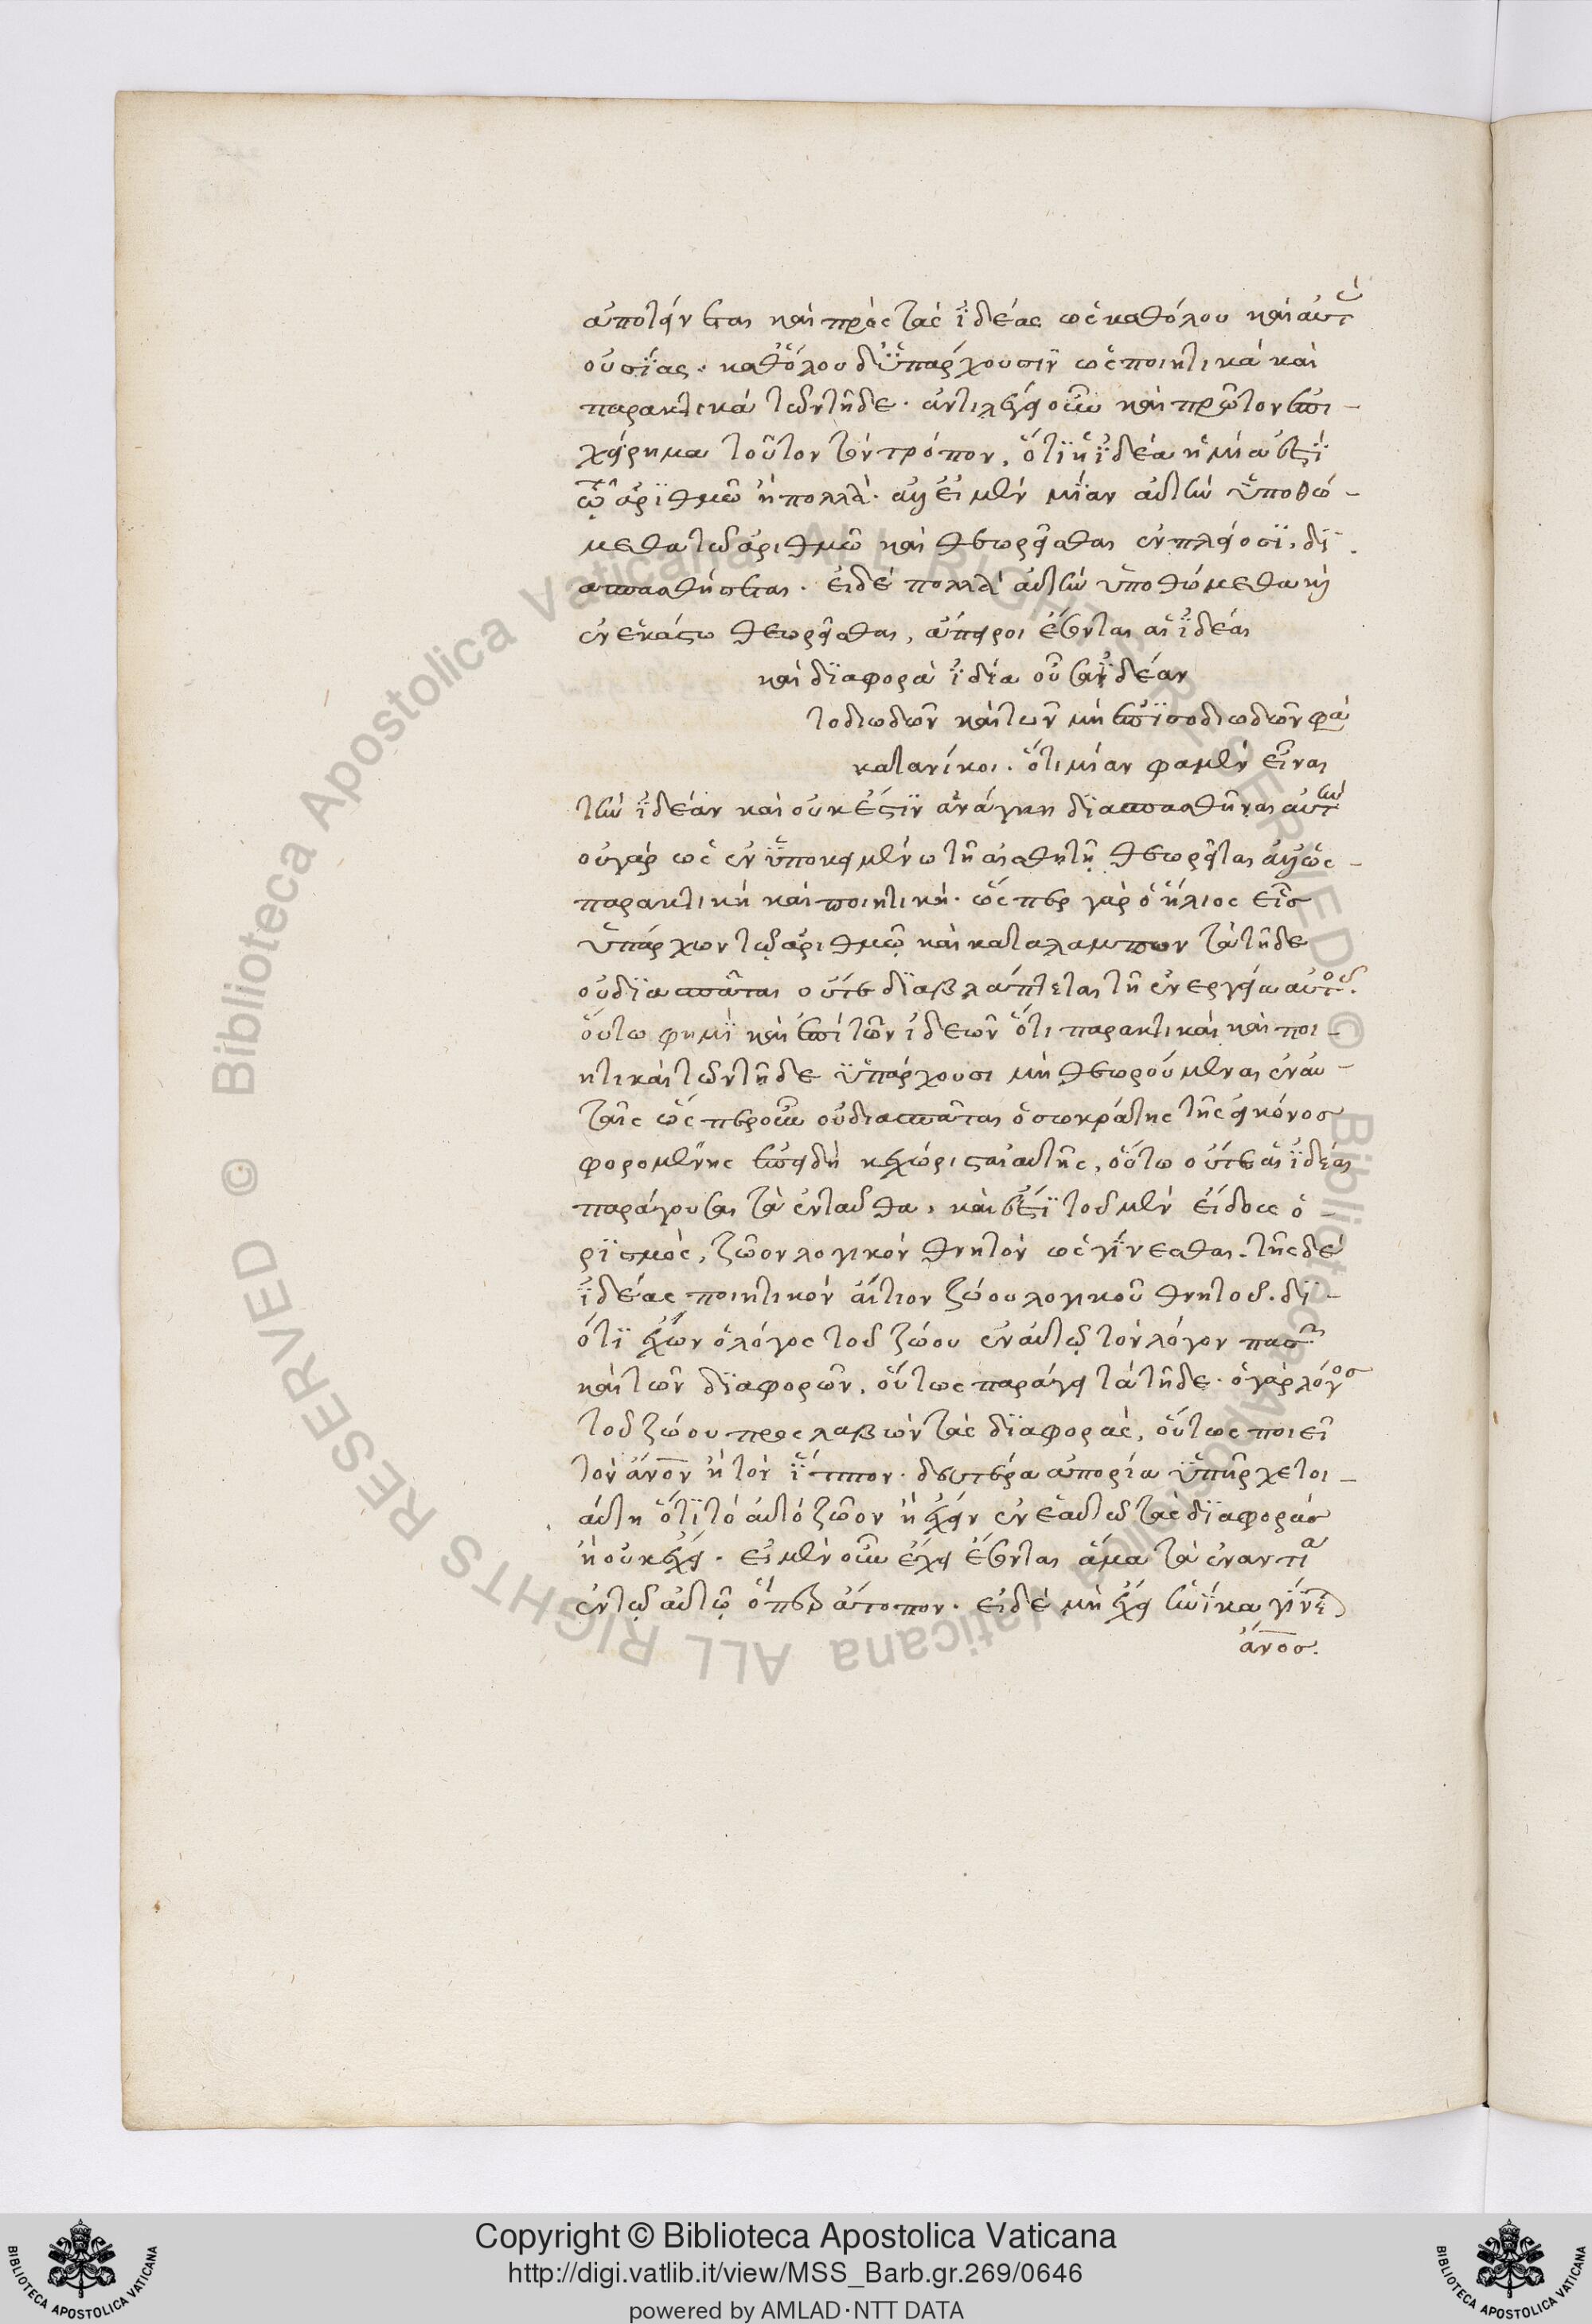 ἀποτείνεται καὶ πρὸς τὰς ἰδέας ὡς καθόλου καὶ αὐτὰς
οὐσίας. καθόλου δ' ὑπάρχουσιν ὡς ποιητικὰ καὶ
παρακτικὰ τῶν τῇδε. ἀντιλέγει οὖν καὶ πρῶτον ἐπι-
χείρημα τοῦτον τὸν τρόπον. ὅτι ἡ ἰδέα ἢ μία ἐστὶ
τῷ ἀριθμῷ ἢ πολλά. ἀλλ' εἰ μὲν μίαν αὐτὴν ὑποθώ-
μεθα τῷ ἀριθμῷ καὶ θεωρεῖσθαι ἐν πλείοσι, δι
ασπασθήσεται. εἰ δὲ πολλὰ αὐτὴν ὑποθώμεθα καὶ
ἐν ἑκάστῳ θεωρεῖσθαι, ἄπειροι ἔσονται αἱ ἰδέαι
καὶ διαφορὰ ἰδία οὖσαι ἰδέαν
τοδιωδῶν καὶ τῶν μὴ ἐπισοδιωδῶν φα
κατανίκοι. ὅτι μίαν φαμὲν εἶναι
τὴν ἰδέαν καὶ οὐκ ἔστιν ἀνάγκη διασπασθῆναι αὐτὴν
οὐ γὰρ ὡς ἐν ὑποκειμένω τῇ αἰσθητῇ θεωρεῖται ἀλλ' ὡς
παρακτικὴ καὶ ποιητική. ὥσπερ γὰρ ὁ ἥλιος εἷς
ὑπάρχων τῷ ἀριθμῷ καὶ καταλάμπων τὰ τῇδε
οὐ διασπᾶται οὔτε διαβλάπτεται τῇ ἐνεργείᾳ αὐτοῦ.
οὕτω φημὶ καὶ ἐπὶ τῶν ἰδεῶν ὅτι παρακτικαὶ καὶ ποι-
ητικαὶ τῶν τῇδε ὑπάρχουσι μὴ θεωρούμεναι ἐν αὐ-
ταῖς ὥσπερ οὖν οὐ διασπᾶται ὁ σωκράτης τῆς εἰκόνος
φορομένης ἐπειδὴ κεχώρισται αὐτῆς, οὕτω οὔτε αἱ ἰδέαι
παράγουσαι τὰ ἐνταῦθα, καὶ ἐστὶ τοῦ μὲν εἴδους ὁ
ρισμὸς, ζῶον λογικὸν θνητὸν ὡς γίνεσθαι. τῆς δὲ
ἰδέας ποιητικὸν αἴτιον ζώου λογικοῦ θνητοῦ. δι-
ότι ἔχων ὁ λόγος τοῦ ζώου ἐν αὐτῷ τὸν λόγον πασῶν
καὶ τῶν διαφορῶν, οὕτως παράγει τὰ τῇδε. ὁ γὰρ λόγος
τοῦ ζώου προσλαβὼν τὰς διαφορὰς, οὕτως ποιεῖ
τὸν ἄνον ἢ τὸν ἵππον. δευτέρα ἀπορία ὑπῆρχε τοι-
αύτη ὅτι τὸ αὐτὸ ζῶον ἢ ἔχειν ἐν ἑαυτῷ τὰς διαφορὰς
ἢ οὐκ ἔχει. εἰ μὲν οὖν ἔχει ἔσονται ἅμα τὰ ἐναντία
ἐν τῷ αὐτῷ ὅπερ ἄτοπον. εἰ δὲ μὴ ἔχει ἡνίκα γίνεται
ἄνος.
Copyright © Biblioteca Apostolica Vaticana
http://digi.vatlib.it/view/MSS_Barb.gr.269/0646
powered by AMLAD·NTT DATA